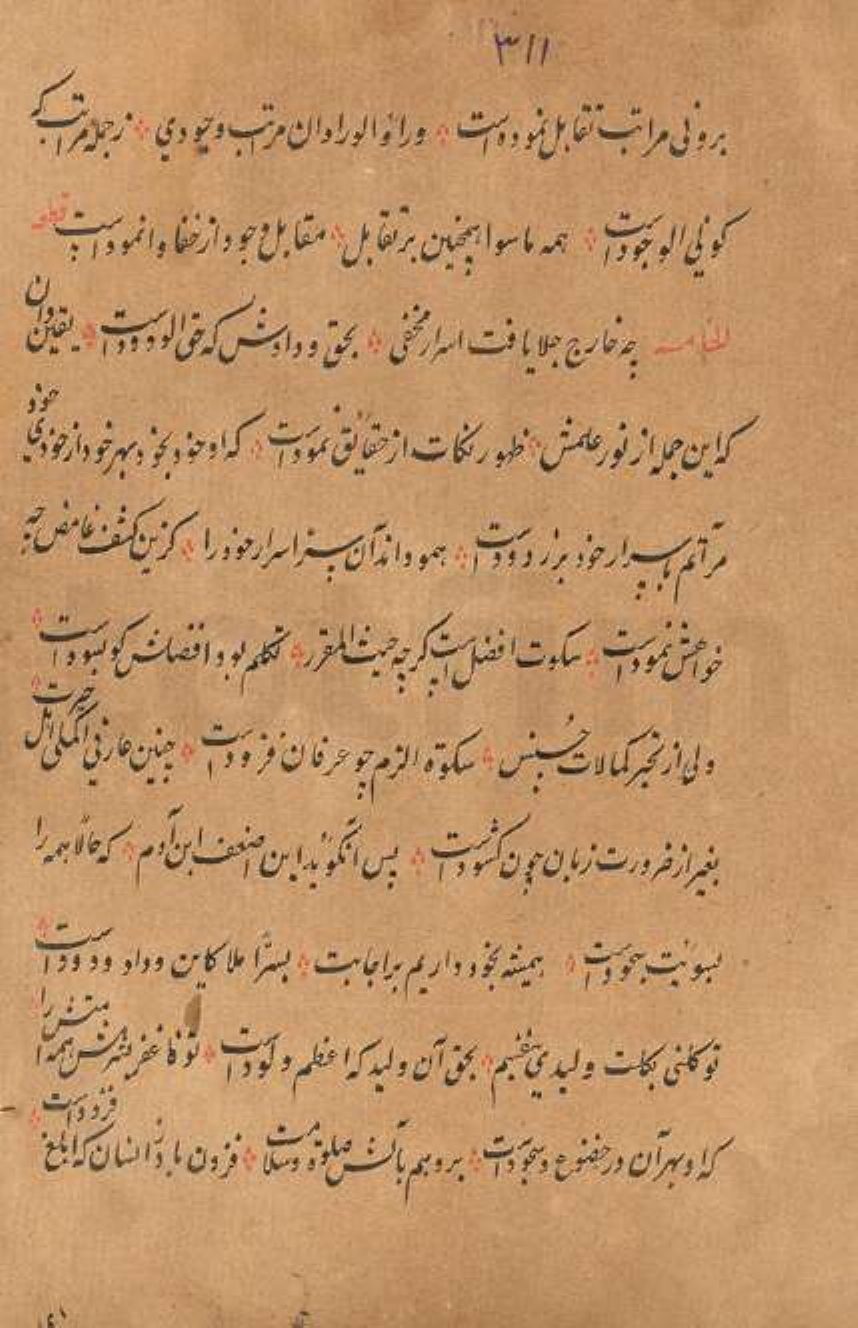 ۳۱۱
برونی مراتب تقابل نموده است ؞ وراؤ الورا دان مرتب وجودی ؞ ز جمله مراتب که
کونی الوجود است ؞ همه ماسوا همچنین بر تقابل ؞ مقابل وجود از خفا وانمود است قطعه
الخامسه چه خارج جلا یافت اسرار مخفی ؞ بحق ودادش که حی الودود است ؞ یقین دان
که این جمله از نور علمش ؞ ظهور نکات از حقائق نمود است ؞ که او خود بخود بهر خود از خودی خود
اسرار خود برزدود است ؞ همو داند آن سرّ اسرار خود را ؞ کزین کشف غامض چه
خواهش نمود است ؞ سکوت افضل است گرچه حیث المقرر ؞ تکلم بود افضلش گو نبود است ؞
ولی از تحیر کمالات حیرت ؞ سکوته الزم چو عرفان فزود است ؞ چنین عارفی اکملی اهل
بغیر از ضرورت زبان چون گشود است ؞ پس آنگوید این اضعف ابن آدم ؞ که حالا همه را
بسویت سجود است ؞ همیشه بخود داریم بر اجابت ؞ بسرّا علا کاین وداد ودود است ؞
تو کلنی بکلت ولیدی ؞ بحق آن ولید که اعظم ولود است ؞ تو فاغفر همه را
که او بهر آن در خضوع و سجود است ؞ برو هم بآلش صلوة و سلامت ؞ فزون باد ز انسان که ابلغ فزود است ؞